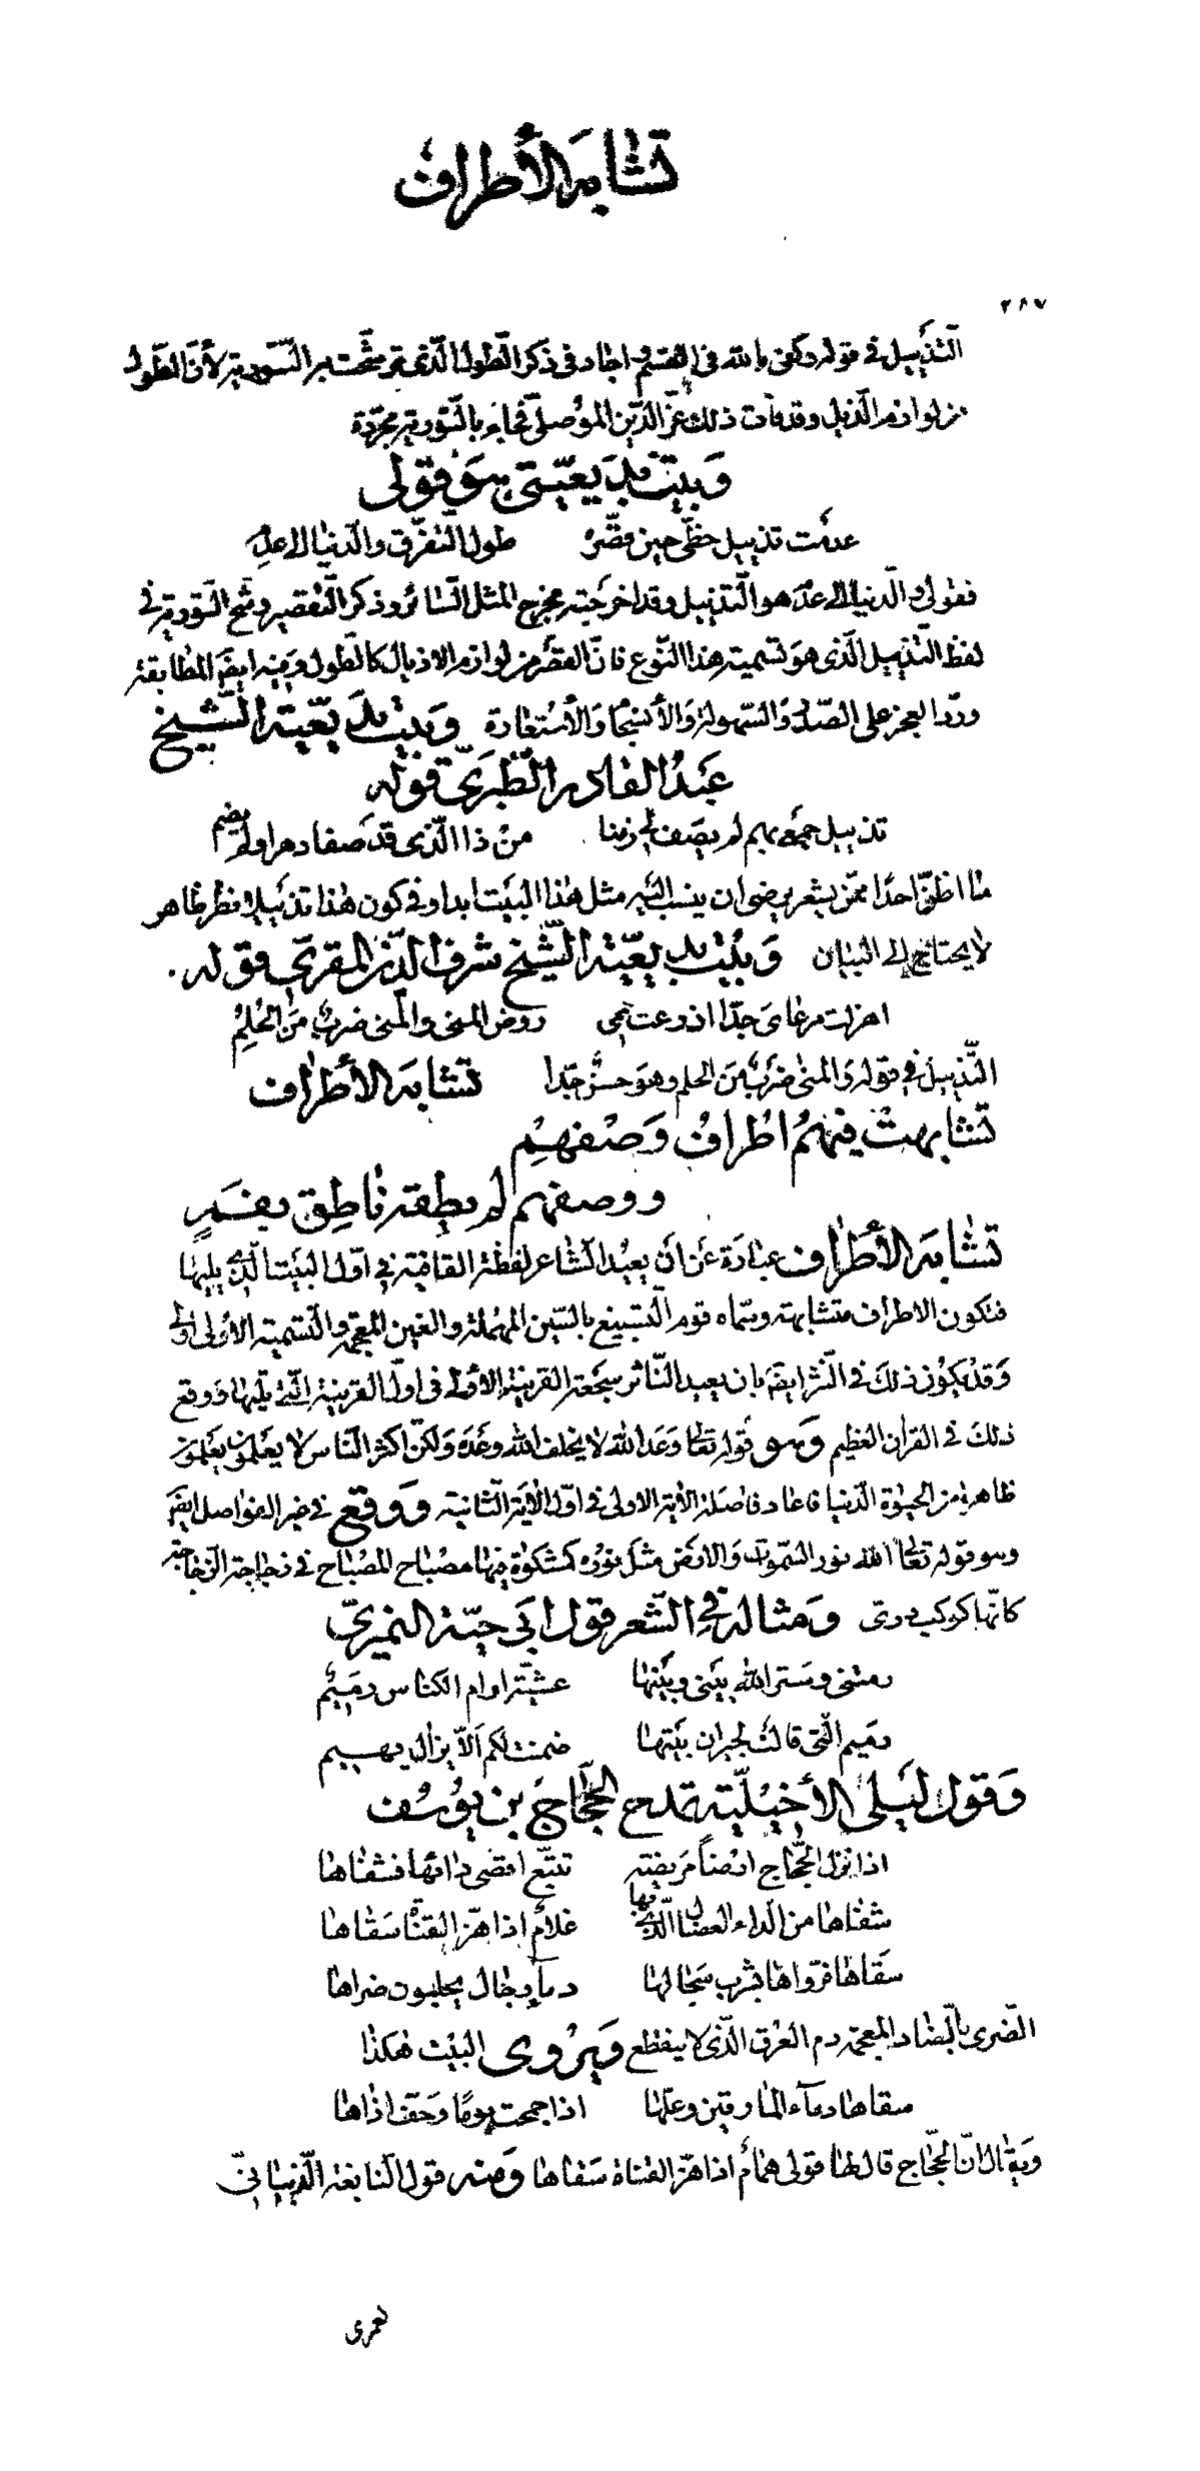 تشابه الأطراف
٢٨٧
التّذييل في قوله وكفى بالله في القسم واجاد في ذكر الطّول الّذى ترشّحت به التّورية لأنّ الطّول
من لوازم الذيل وقد فات ذلك عزّ الدّين الموصلىّ فجاء بالتّورية مجرّدة
وَبيت بديعيّتي هو قولى
عدمت تذييل حظّى حين قصّره طول التّفرّق والدّنيا الى عدم
فقولى والدنيا الى عدم هو التّذييل وقد اخرجته مخرج المثل السّائر وذكر التّقصير رشّح التّورية في
لفظ التّذييل الّذى هو تسمية هذا النّوع فانّ القصر من لوازم الاذيال كالطّول وفيه ايضًا المطابقة
وردّ العجز على الصّدر والسّهولة والأنسجام والأستعارة وَبيت بديعيّة الشّيخ
عَبْد القادر الطّبرىّ قوله
تذييل جمعهم لم يصف لي زمنا من ذا الّذى قد صفا دهرا ولم يضم
ما اظنّ احدًا ممّن يشعر يرضى ان ينسب اليه مثل هذا البيت ابدا وفي كون هذا تذييلا نظر ظاهر
لا يحتاج إلى البيان وَبيت بديعيّة الشّيخ شرف الدّين المقرىّ قوله
اهزلت مرعاى جدّا اذ رعت هممى روض المنى والمنى ضرب من الحلم
التّذييل في قوله والمنى ضرب من الحلم وهو حسن جدّا تشابه الأطراف
تشابهت فيهم اطراف وَصْفهم
ووصفهم لم يطقه ناطِق بفمٍ
تشابه الأطراف عبارة عن ان يعيد الشّاعر لفظة القافية في اوّل البيت الّذي يليها
فتكون الاطراف متشابهة وسمّاه قوم التّسبيغ بالسّين المهملة والغين المعجمة والتّسمية الأولى اولى
وَقد يكون ذلك في النّثر ايضًا بان يعيد النّاثر سجعة القرينة الأولى في اوّل القرينة الّتي تليها ووقع
ذلك في القرآن العظيم وهو قوله تعالى وَعَد الله لا يخلف الله وعده وَلكنّ اكثر النّاس لا يعلمون يعلمون
ظاهرا من الحيوة الدّنيا فاعاد فاصلة الأية الاولى في اوّل الأية الثّانية وَوقع في غير الفواصل ايضًا
وهو قوله تعالى الله نور السّموات وَالارض مثل نوره كمشكوة فيها مصباح المصباح في زجاجة الزّجاجة
كانّها كوكب درىّ وَمثاله في الشّعر قول ابي حيّة النميرىّ
رمتنى وستر الله بينى وبينها عشيّة ارام الكناس رميم
رميم الّتى قالت لجيران بيتها ضمنت لكم الاّ يزال يهيم
وَقول ليلى الأخيليّة تمدح الحجّاج بن يوسف
اذا نزل الحجّاج ارضًا مريضة تتبّع اقصى دائها فشفاها
شفاها من الدّاء العضال الّذي بها غلام اذا هزّ القناة سقاها
سقاها فروّاها بشرب سجالها دماء رجال يحلبون ضراها
الضّرى بالضّاد المعجمة دم العرق الّذى لا ينقطع وَيروى البيت هكذا
سقاها دماء المارقين وعلّها اذا جمحت يومًا وخيف اذاها
ويقال انّ الحجّاج قال لها قولى همام اذا هزّ القناة سقاها وَمنه قول النّابغة الذّبيانىّ
لعمرى